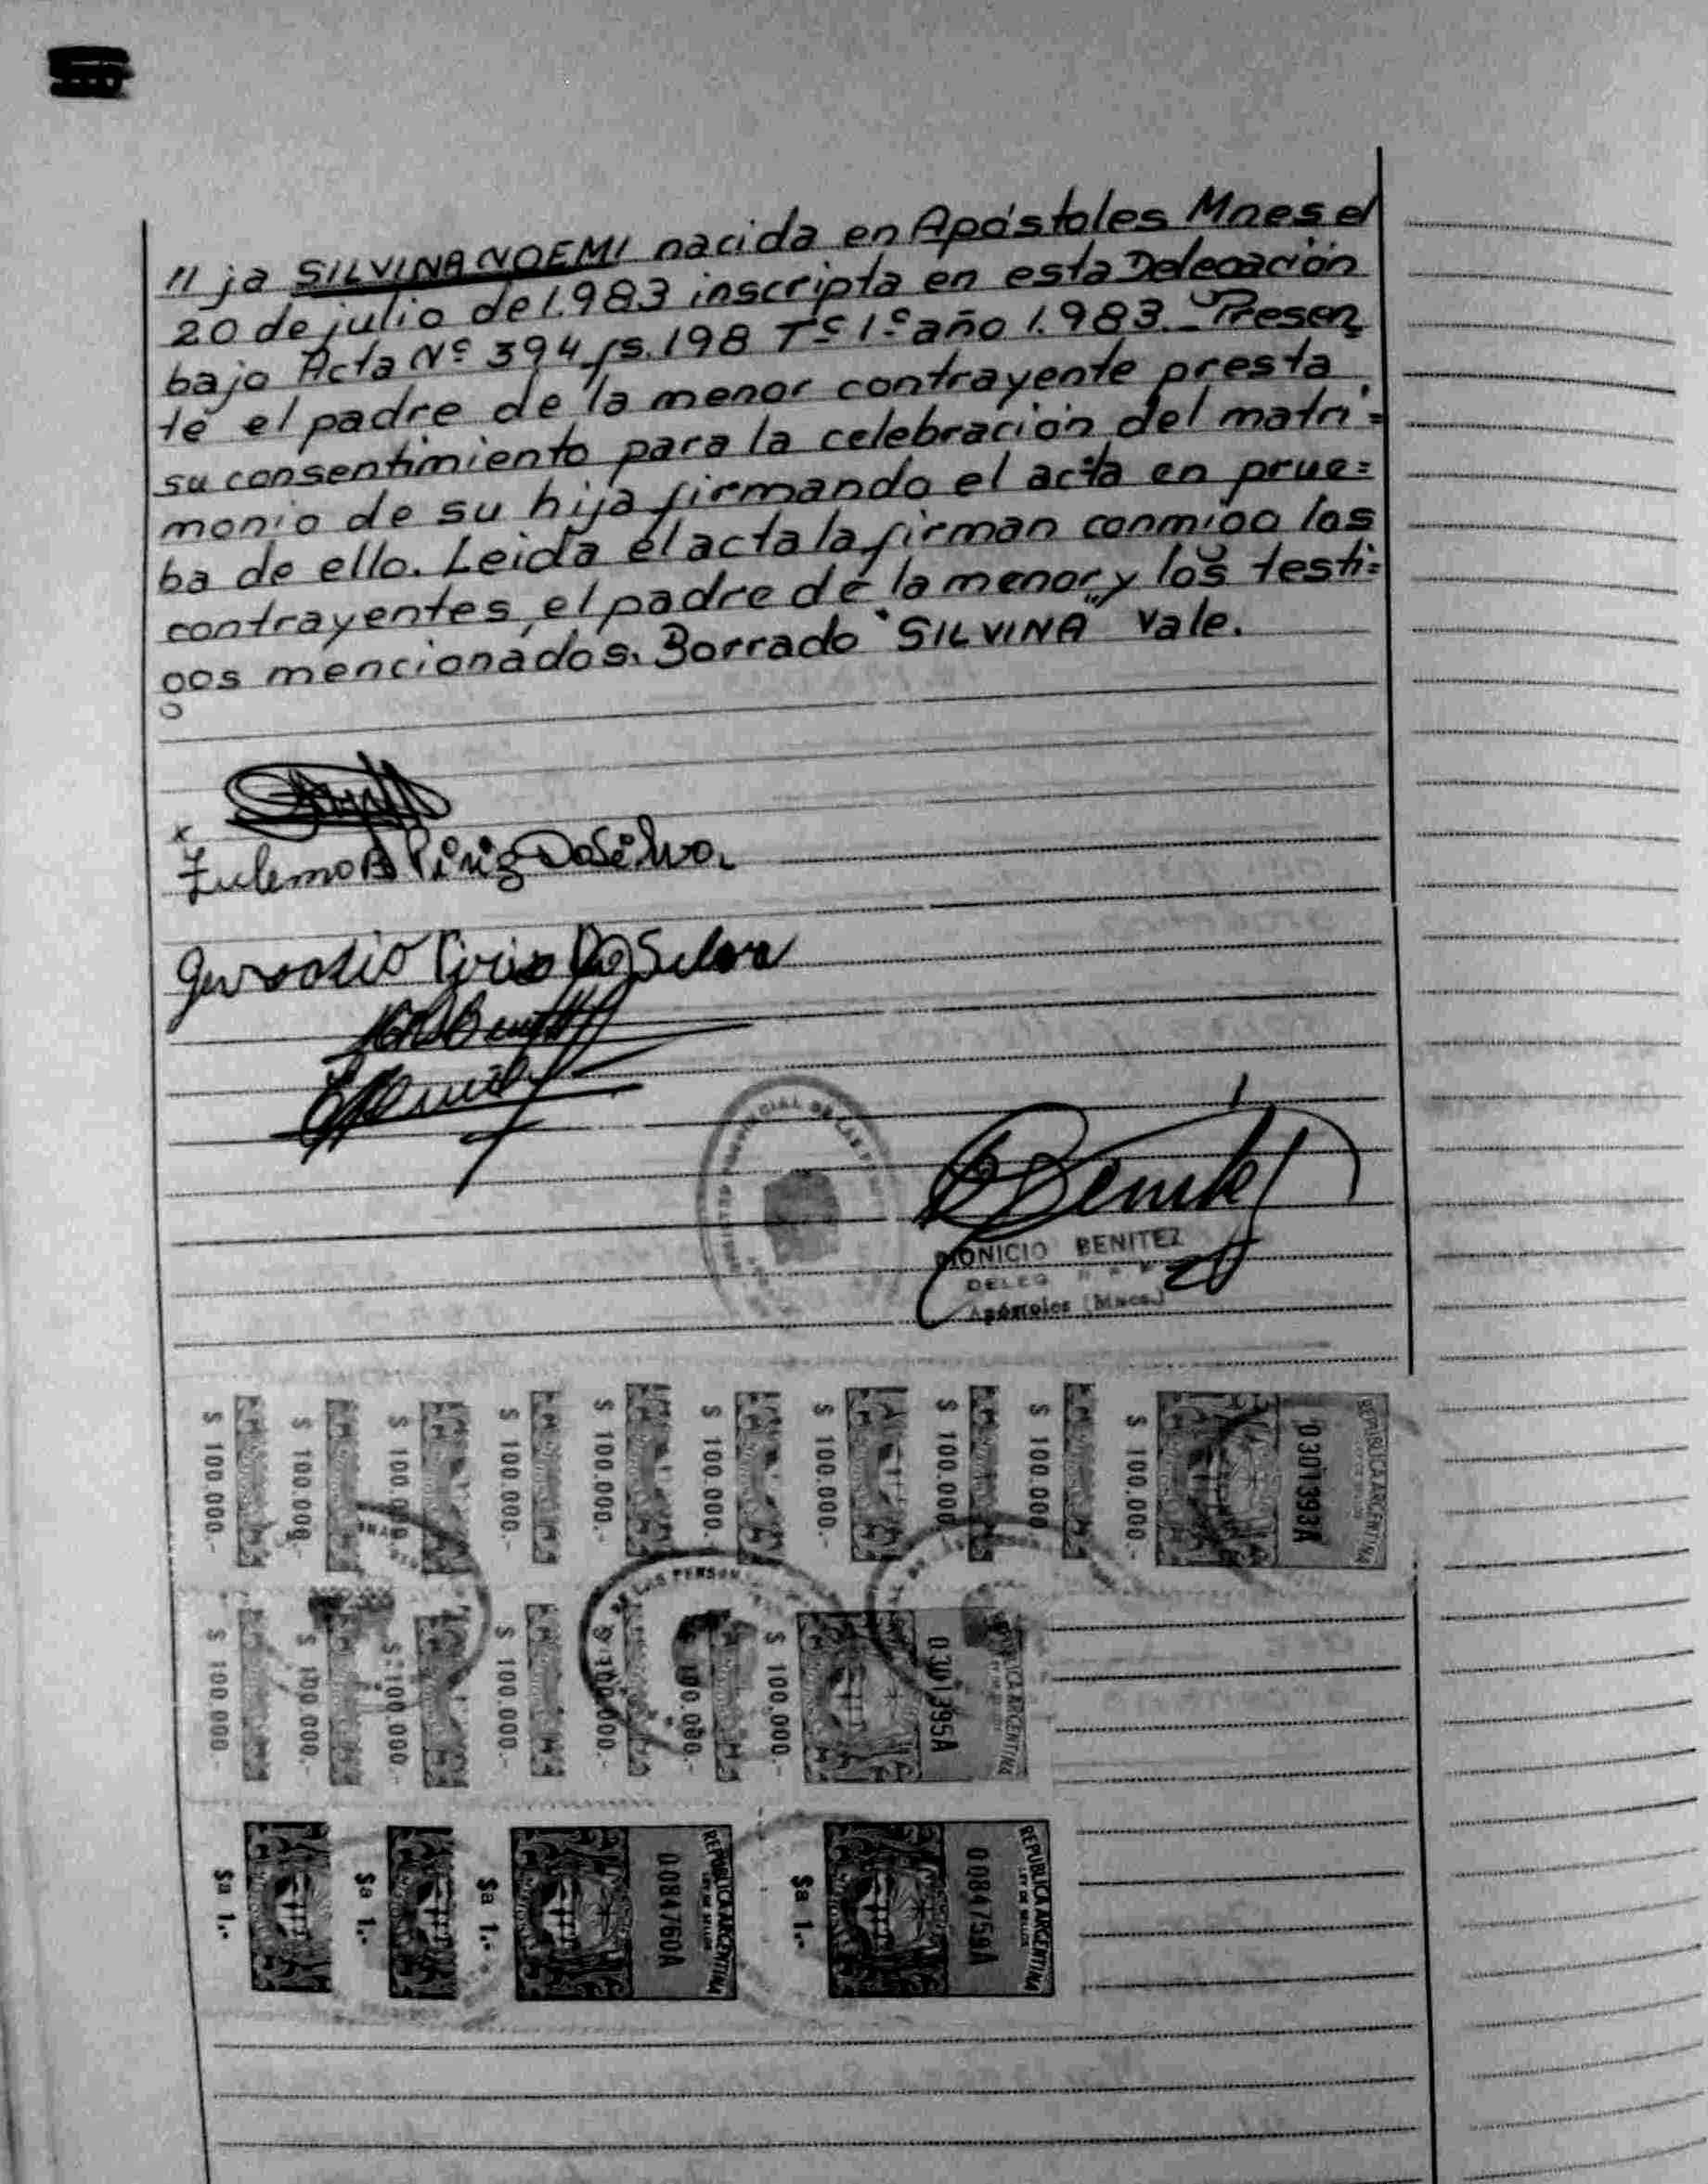 "ja SILVINA NOEMI nacida en Apóstoles Mnes el
20 de julio de 1.983 inscripta en esta Delegación
bajo Acta Nº 394 fs. 198 Tº 1º año 1.983._ Presen
te el padre de la menor contrayente presta
su consentimiento para la celebración del matri=
monio de su hija firmando el acta en prue=
ba de ello. Leida el acta la firman conmigo los
contrayentes, el padre de la menor y los testi=
gos mencionados. Borrado "SILVINA" Vale.
x
Zulema B Piriz DaSilva
Gervasio Piriz Da Silva
Benitez
DIONICIO BENITEZ
DELEG
Apóstoles (Mnes.)
$ 100.000.- $ 100.000.- $ 100.000.- $ 100.000.- $ 100.000.- $ 100.000.- $ 100.000.- $ 100.000 $ 100.000 $ 100.000.- 0301393A REPUBLICA ARGENTINA
$ 100.000 $ 100.000.- $ 100.000.- $ 100.000.- 000.- $ 100.000.- $ 100.000.- 0301395A REPUBLICA ARGENTINA
LAS PERSON
$a 1.- $a 1.- $a 1.- 0084760A REPUBLICA ARGENTINA LEY DE SELLOS $a 1.- 0084759A REPUBLICA ARGENTINA LEY DE SELLOS